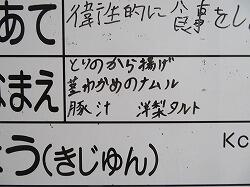 あて 衛生的に食事をし
なまえ とりのから揚げ
茎わかめのナムル
豚汁 洋梨タルト
う(きじゅん) Kc